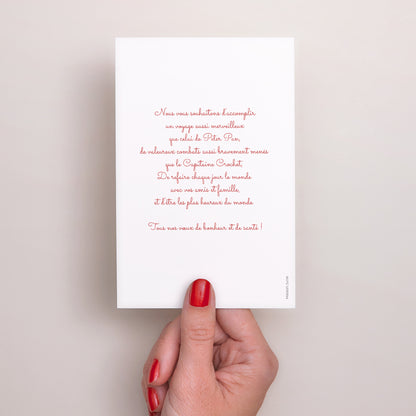 Nous vous souhaitons d'accomplir
un voyage aussi merveilleux
que celui de Peter Pan,
de valeureux combats aussi bravement menés
que le Capitaine Crochet,
De refaire chaque jour le monde
avec vos amis et famille,
et d'être les plus heureux du monde
Tous nos vœux de bonheur et de santé !